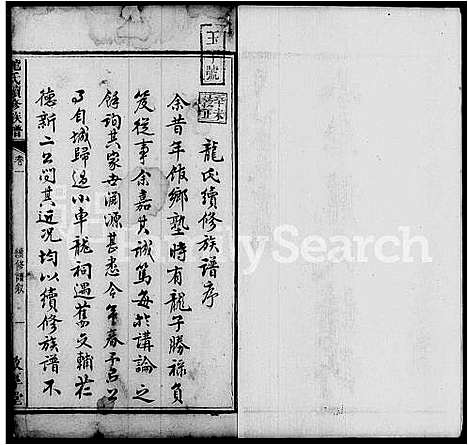 玉字號
龍氏續修族譜序
余昔年作鄉塾時有龍子勝祿負
笈從事余嘉其誠篤每於講論之
餘詢其家世淵源甚悉今年春予以公
自城歸過小車龍祠遇舊文輔芹
德新二公問其近況均以續修族譜不
龍氏續修族譜
卷一
續修譜敘
一
敦本堂
FamilySearch